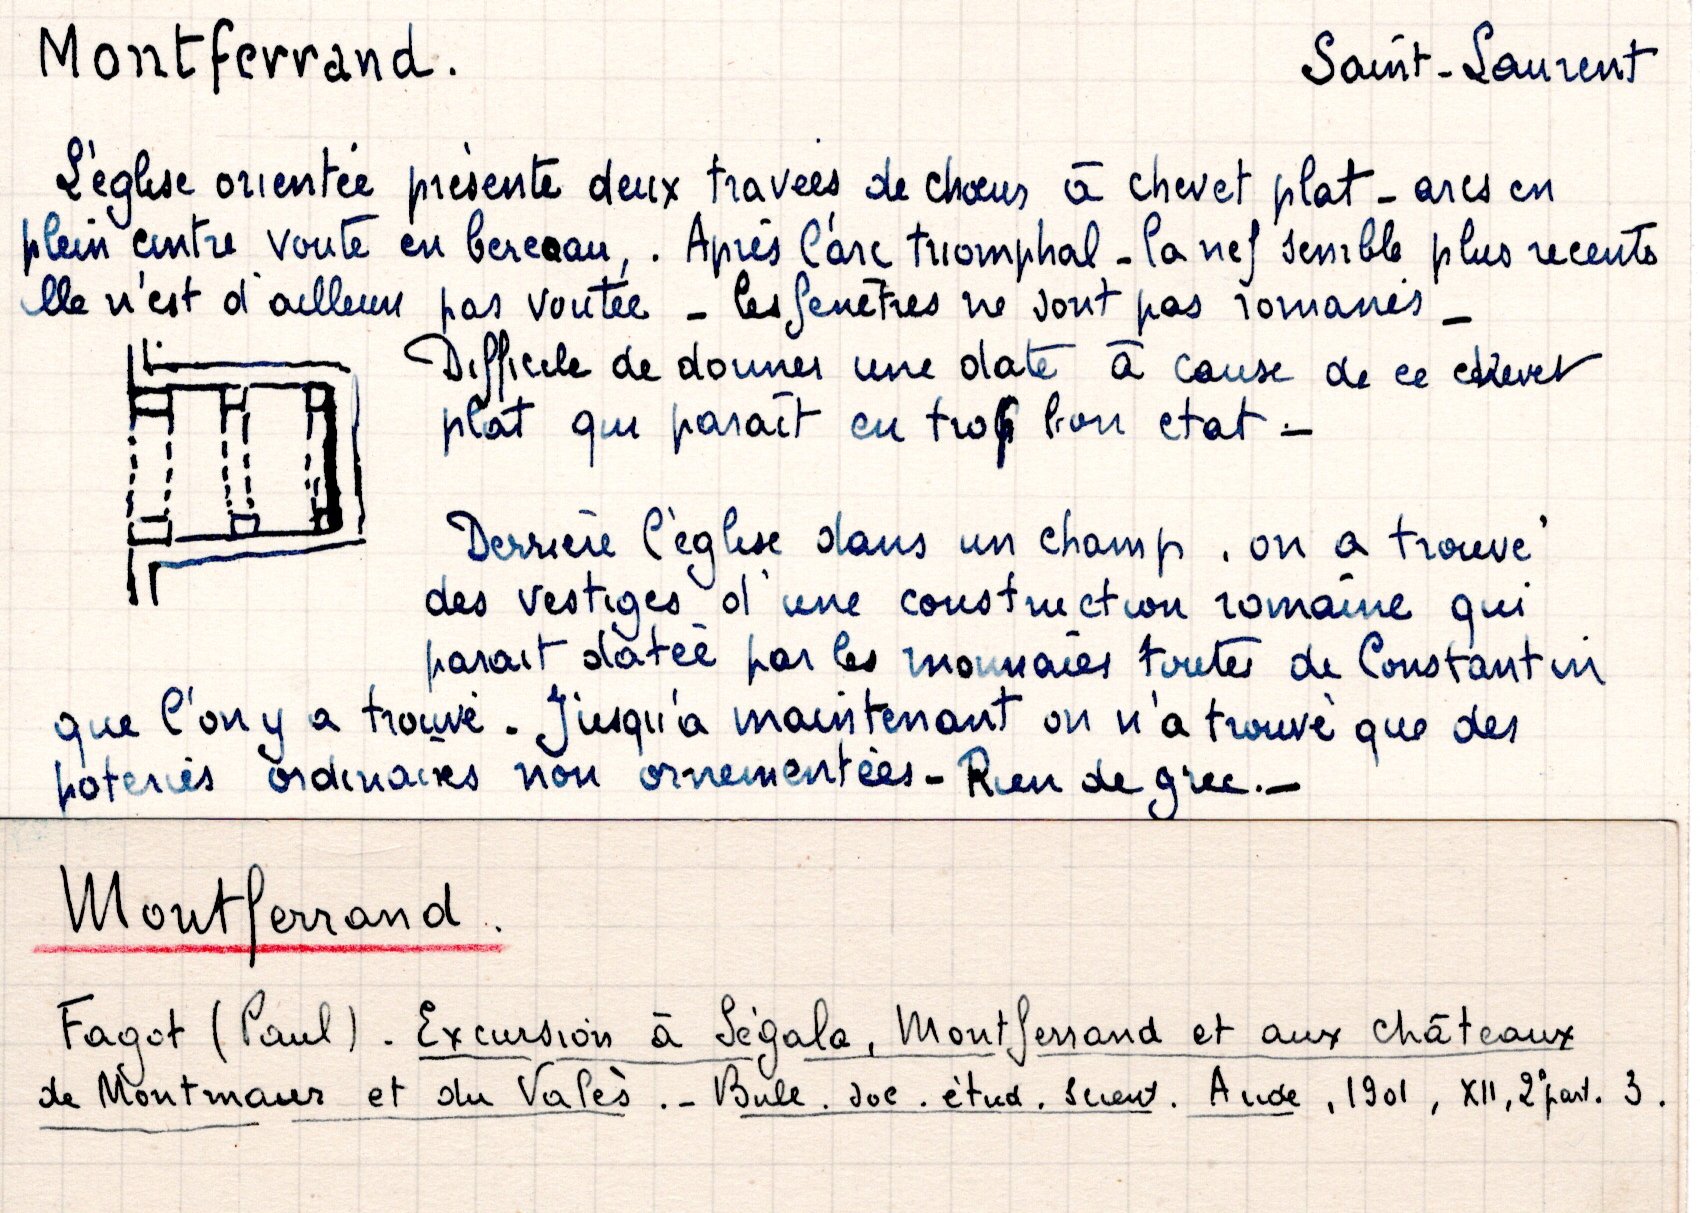 Montferrand.
Saint-Laurent
L'église orientée présente deux travées de chœur à chevet plat - arcs en
plein cintre voute en berceau, . Après l'arc triomphal - la nef semble plus recente
elle n'est d'ailleurs pas voutée - les fenêtres ne sont pas romanes -
Difficile de donner une date à cause de ce chevet
plat qui paraît en trop bon etat -
Derrière l'église dans un champ, on a trouvé
des vestiges d'une construction romaine qui
parait datée par les monnaies toutes de Constantin
que l'on y a trouvé. Jusqu'à maintenant on n'a trouvé que des
poteries ordinaires non ornementées - Rien de grec. -
Montferrand.
Fagot (Paul). Excursion à Ségala, Montferrand et aux châteaux
de Montmaur et du Valès. - Bull. soc. étud. scient. Aude, 1901, XII, 2e part. 3.